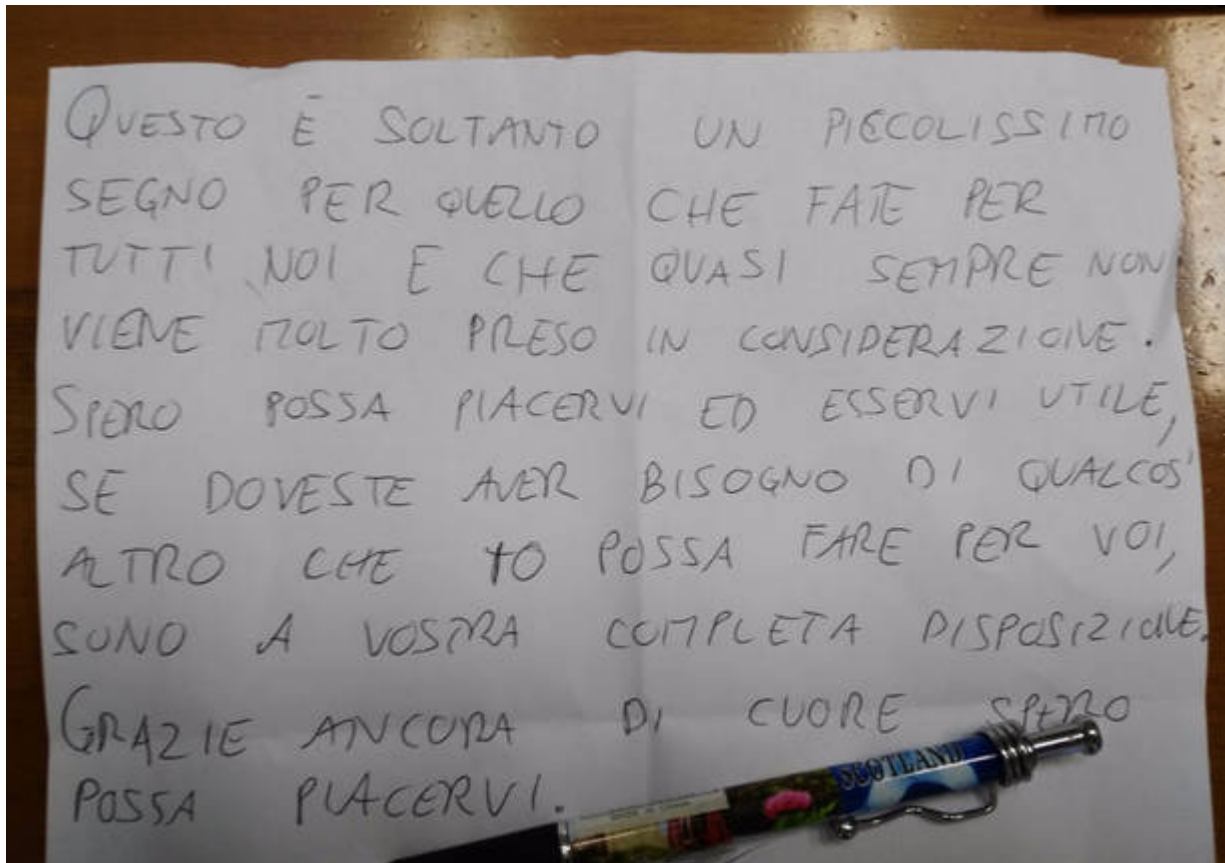 QUESTO È SOLTANTO UN PICCOLISSIMO
SEGNO PER QUELLO CHE FATE PER
TUTTI NOI E CHE QUASI SEMPRE NON
VIENE MOLTO PRESO IN CONSIDERAZIONE.
SPERO POSSA PIACERVI ED ESSERVI UTILE,
SE DOVESTE AVER BISOGNO DI QUALCOS'
ALTRO CHE IO POSSA FARE PER VOI,
SONO A VOSTRA COMPLETA DISPOSIZIONE.
GRAZIE ANCORA DI CUORE SPERO
POSSA PIACERVI.
SCOTLAND